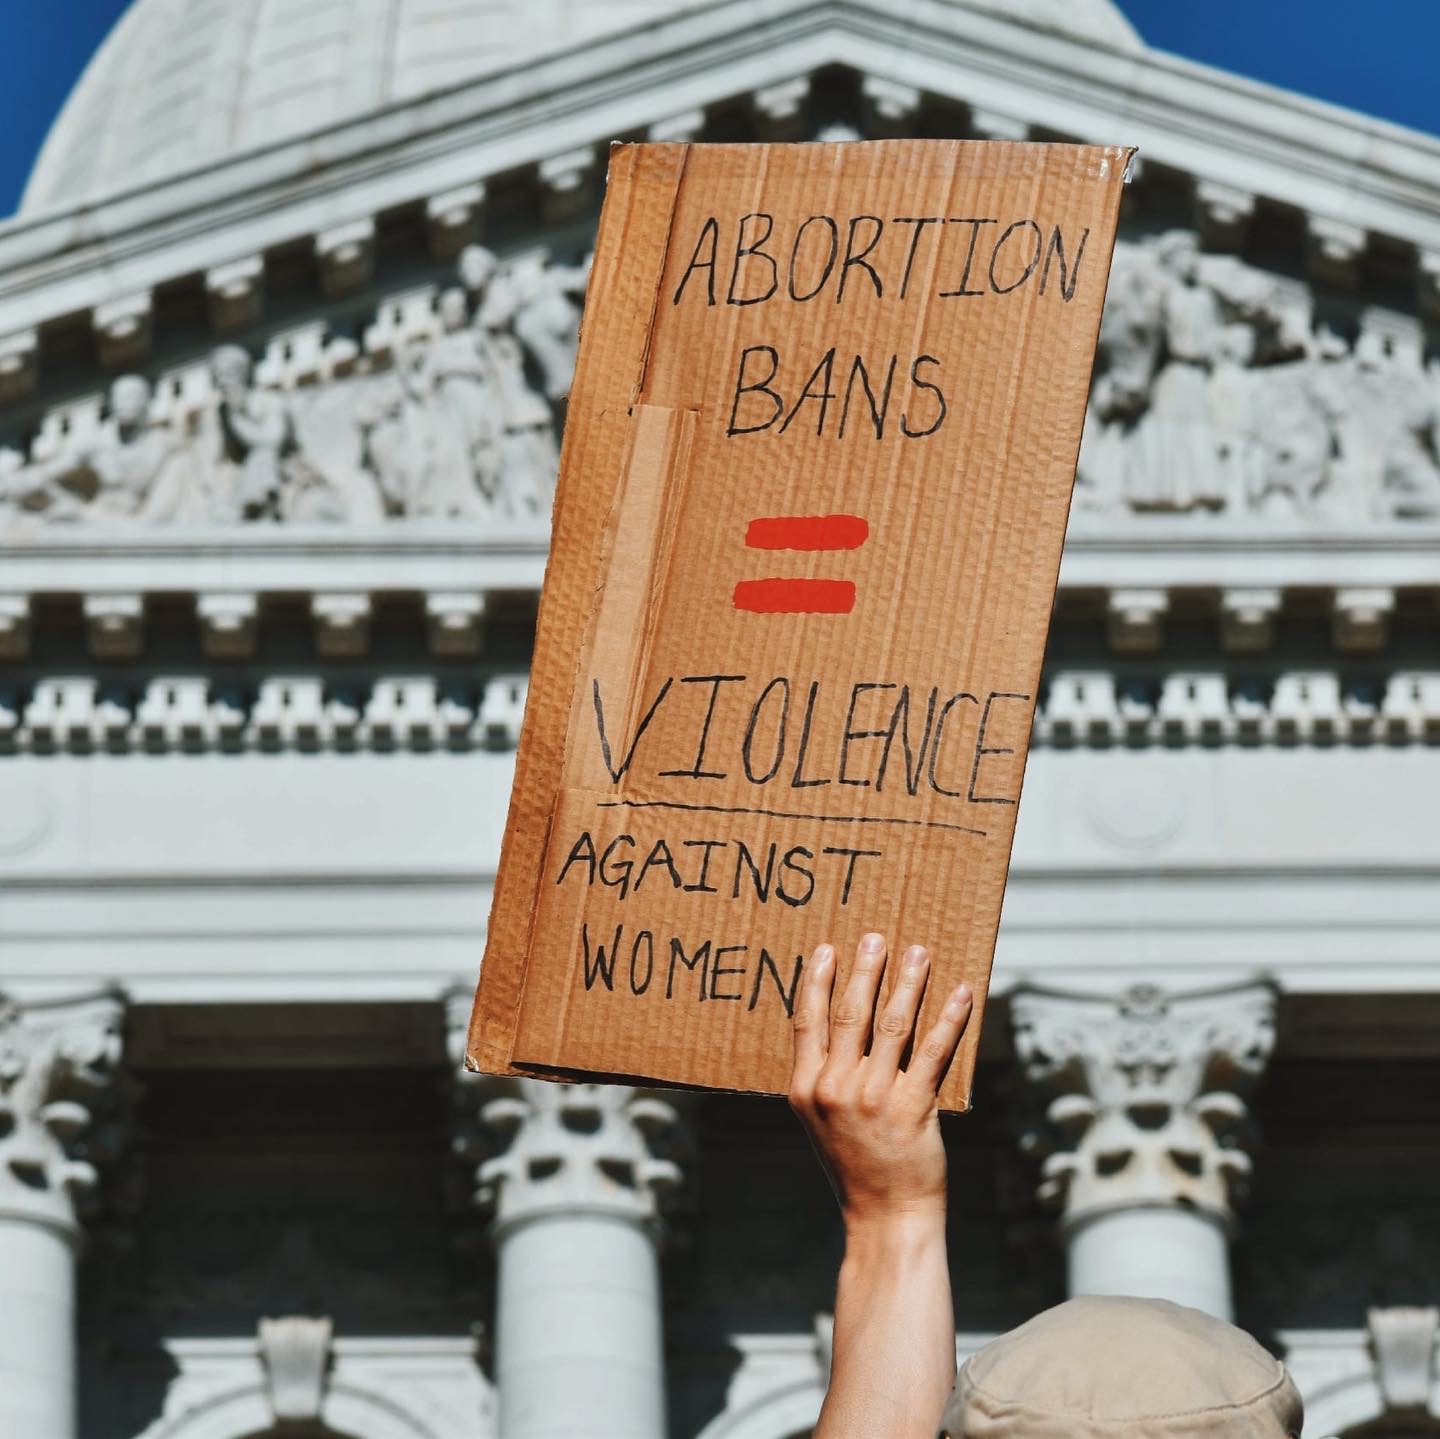 ABORTION
BANS
=
VIOLENCE
AGAINST
WOMEN